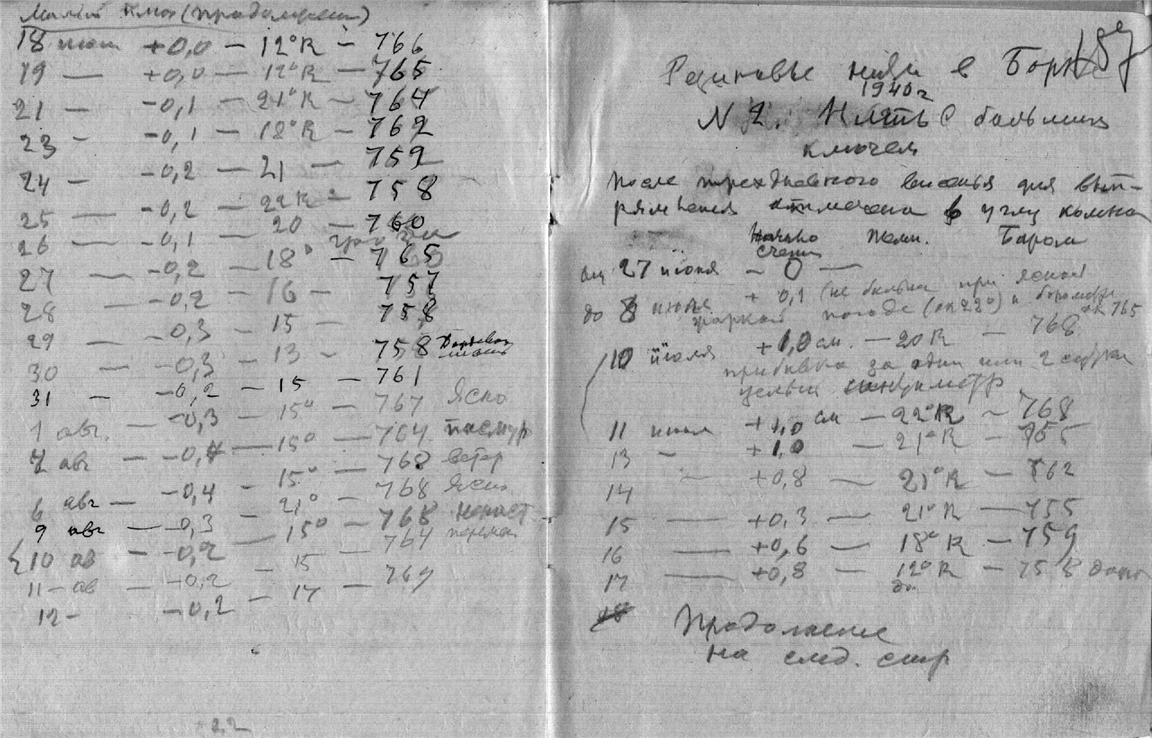 Малый ключ (продолжение)
18 июл +0,0 — 12°R — 766
19 — +0,0 — 12°R — 765
21 — -0,1 — 21°R — 764
23 — -0,1 — 18°R — 762
24 — -0,2 — 21 — 759
25 -0,2 — 22R — 758
26 — -0,1 — 20 — 760
27 — -0,2 — 18° — 765
28 — -0,2 — 16 — 757
29 — -0,3 — 15 — 758
30 — -0,3 — 13 — 758
31 — -0,2 — 15 — 761
1 авг. — -0,3 — 15° — 767 Ясно
2 авг — -0,4 — 15° — 764 пасмур
6 авг — -0,4 — 15° — 768 ветер
9 авг — -0,3 — 21° — 768 Ясно
10 ав — -0,2 — 15° — 768
11 ав — -0,2 — 15 — 764
12 — -0,2 — 17 — 769
87
Резиновые нити в Борк
1940г
N 2. Нить с большим
ключем
После трехдневного висенья для вып-
рямления в углу комна
Начало счета Темп. Баром
от 27 июня — 0 —
до 8 июля + 0,1 (не больше при ясной
жаркой погоде (до 22°) и барометре 765
10 июля +1,0 см. — 20R — 768
прибавка за один или 2 суток
целый сантиметр
11 июля +1,0 см — 22°R — 768
13 — +1,0 — 21°R — 765
14 +0,8 — 21°R — 762
15 — +0,3 — 21°R — 755
16 — +0,6 — 18°R — 759
17 — +0,8 — 12°R — 758
18
Продолжение
на след. стр